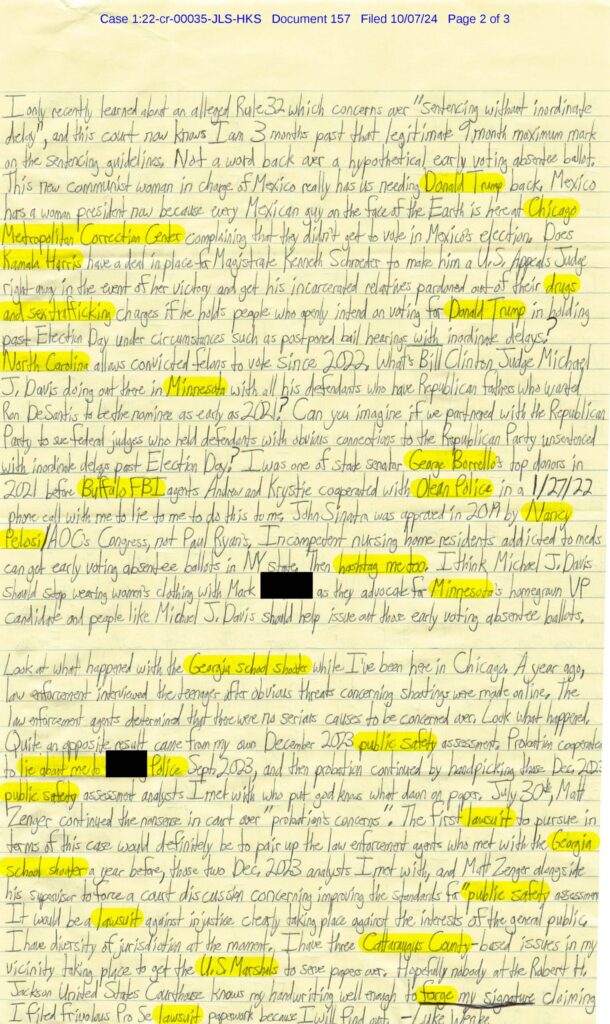 Case 1:22-cr-00035-JLS-HKS Document 157 Filed 10/07/24 Page 2 of 3
I only recently learned about an alleged Rule 32 which concerns over "sentencing without inordinate
delay", and this court now knows I am 3 months past that legitimate 9 month maximum mark
on the sentencing guidelines. Not a word back over a hypothetical early voting absentee ballot.
This new communist woman in charge of Mexico really has us needing Donald Trump back. Mexico
has a woman president now because every Mexican guy on the face of the Earth is here at Chicago
Metropolitan Correction Center complaining that they didn't get to vote in Mexico's election. Does
Kamala Harris have a deal in place for Magistrate Kenneth Schroeder to make him a U.S. Appeals Judge
right away in the event of her victory and get his incarcerated relatives pardoned out of their drugs
and sex trafficking charges if he holds people who openly intend on voting for Donald Trump in holding
past Election Day under circumstances such as postponed bail hearings with inordinate delays?
North Carolina allows convicted felons to vote since 2022. What's Bill Clinton Judge Michael
J. Davis doing out there in Minnesota with all his defendants who have Republican fathers who wanted
Ron DeSantis to be the nominee as early as 2021? Can you imagine if we partnered with the Republican
Party to sue federal judges who held defendants with obvious connections to the Republican Party unsentenced
with inordinate delays past Election Day? I was one of state senator George Borrello's top donors in
2021 before Buffalo FBI agents Andrew and Krystie cooperated with Olean Police in a 1/27/22
phone call with me to lie to me to do this to me. John Sinatra was approved in 2019 by Nancy
Pelosi/AOC's Congress, not Paul Ryan's. Incompetent nursing home residents addicted to meds
can get early voting absentee ballots in NY state. Then hashtag me too. I think Michael J. Davis
should stop wearing women's clothing with Mark as they advocate for Minnesota's homegrown VP
candidate and people like Michael J. Davis should help issue out those early voting absentee ballots.
Look at what happened with the Georgia school shooter while I've been here in Chicago. A year ago,
law enforcement interviewed the teenager after obvious threats concerning shootings were made online. The
law enforcement agents determined that there were no serials causes to be concerned over. Look what happened.
Quite an opposite result came from my own December 2023 public safety assessment. Probation cooperated
to lie about me to Police Sept. 2023, and then probation continued by handpicking those Dec. 2023
public safety assessment analysts I met with who put god knows what down on paper. July 30th, Matt
Zenger continued the nonsense in court over "probation's concerns". The first lawsuit to pursue in
terms of this case would definitely be to pair up the law enforcement agents who met with the Georgia
school shooter a year before, those two Dec. 2023 analysts I met with, and Matt Zenger alongside
his supervisor to force a court discussion concerning improving the standards for "public safety assessment
It would be a lawsuit against injustice clearly taking place against the interests of the general public.
I have diversity of jurisdiction at the moment. I have three Cattaraugus County-based issues in my
vicinity taking place to get the U.S Marshals to serve papers over. Hopefully nobody at the Robert H.
Jackson United States Courthouse knows my handwriting well enough to forge my signature claiming
I filed frivolous Pro Se lawsuit paperwork because I will find out. -Luke Wenke